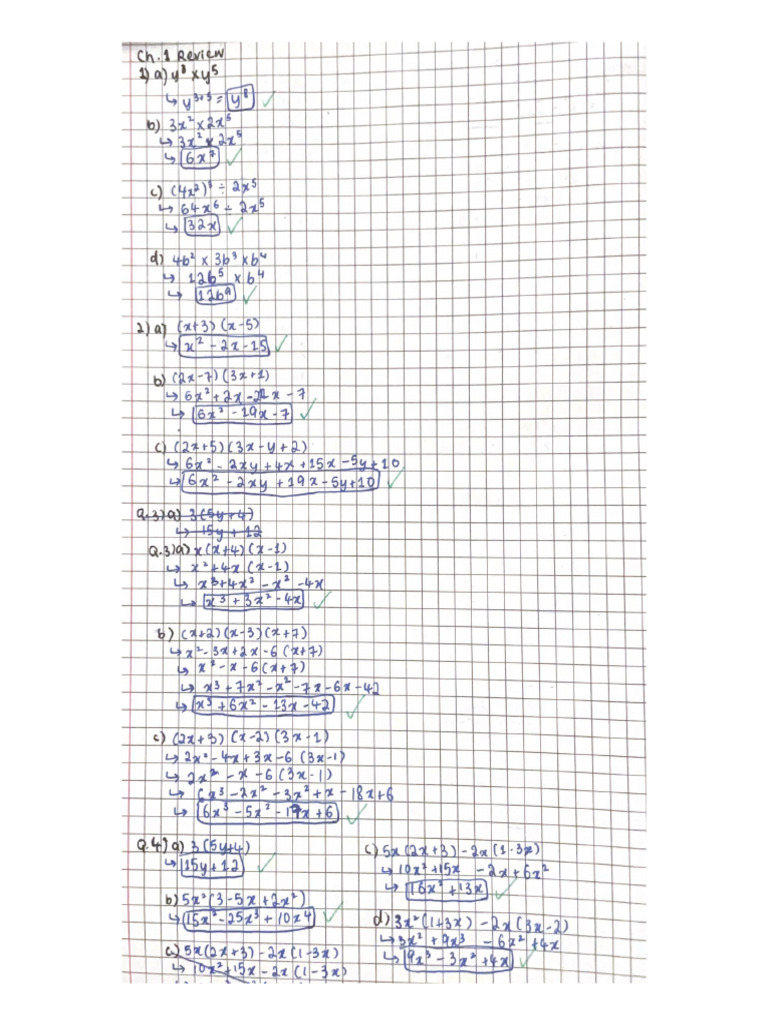 Ch. 1 Review
1) a) y³ × y⁵
↳ y³⁺⁵ = y⁸ ✓
b) 3x² × 2x⁵
↳ 3x² × 2x⁵
↳ 6x⁷ ✓
c) (4x²)³ ÷ 2x⁵
↳ 64x⁶ ÷ 2x⁵
↳ 32x ✓
d) 4b² × 3b³ × b⁴
↳ 12b⁵ × b⁴
↳ 12b⁹ ✓
2) a) (x+3) (x-5)
↳ x² - 2x - 15 ✓
b) (2x-7) (3x+1)
↳ 6x² + 2x - 21x - 7
↳ 6x² - 19x - 7 ✓
c) (2x+5) (3x-y+2)
↳ 6x² - 2xy + 4x + 15x - 5y + 10
↳ 6x² - 2xy + 19x - 5y + 10 ✓
Q.3) a) 3(5y+4)
↳ 15y + 12
Q.3) a) x(x+4) (x-1)
↳ x² + 4x (x-1)
↳ x³ + 4x² - x² - 4x
↳ x³ + 3x² - 4x ✓
b) (x+2) (x-3) (x+7)
↳ x² - 3x + 2x - 6 (x+7)
↳ x² - x - 6 (x+7)
↳ x³ + 7x² - x² - 7x - 6x - 42
↳ x³ + 6x² - 13x - 42 ✓
c) (2x+3) (x-2) (3x-1)
↳ 2x² - 4x + 3x - 6 (3x-1)
↳ 2x² - x - 6 (3x-1)
↳ 6x³ - 2x² - 3x² + x - 18x + 6
↳ 6x³ - 5x² - 17x + 6 ✓
Q.4) a) 3(5y+4)
↳ 15y + 12 ✓
b) 5x² (3 - 5x + 2x²)
↳ 15x² - 25x³ + 10x⁴ ✓
c) 5x(2x+3) - 2x(1-3x)
↳ 10x² + 15x - 2x (1-3x)
c) 5x(2x+3) - 2x(1-3x)
↳ 10x² + 15x - 2x + 6x²
↳ 16x² + 13x ✓
d) 3x² (1+3x) - 2x (3x-2)
↳ 3x² + 9x³ - 6x² + 4x
↳ 9x³ - 3x² + 4x ✓